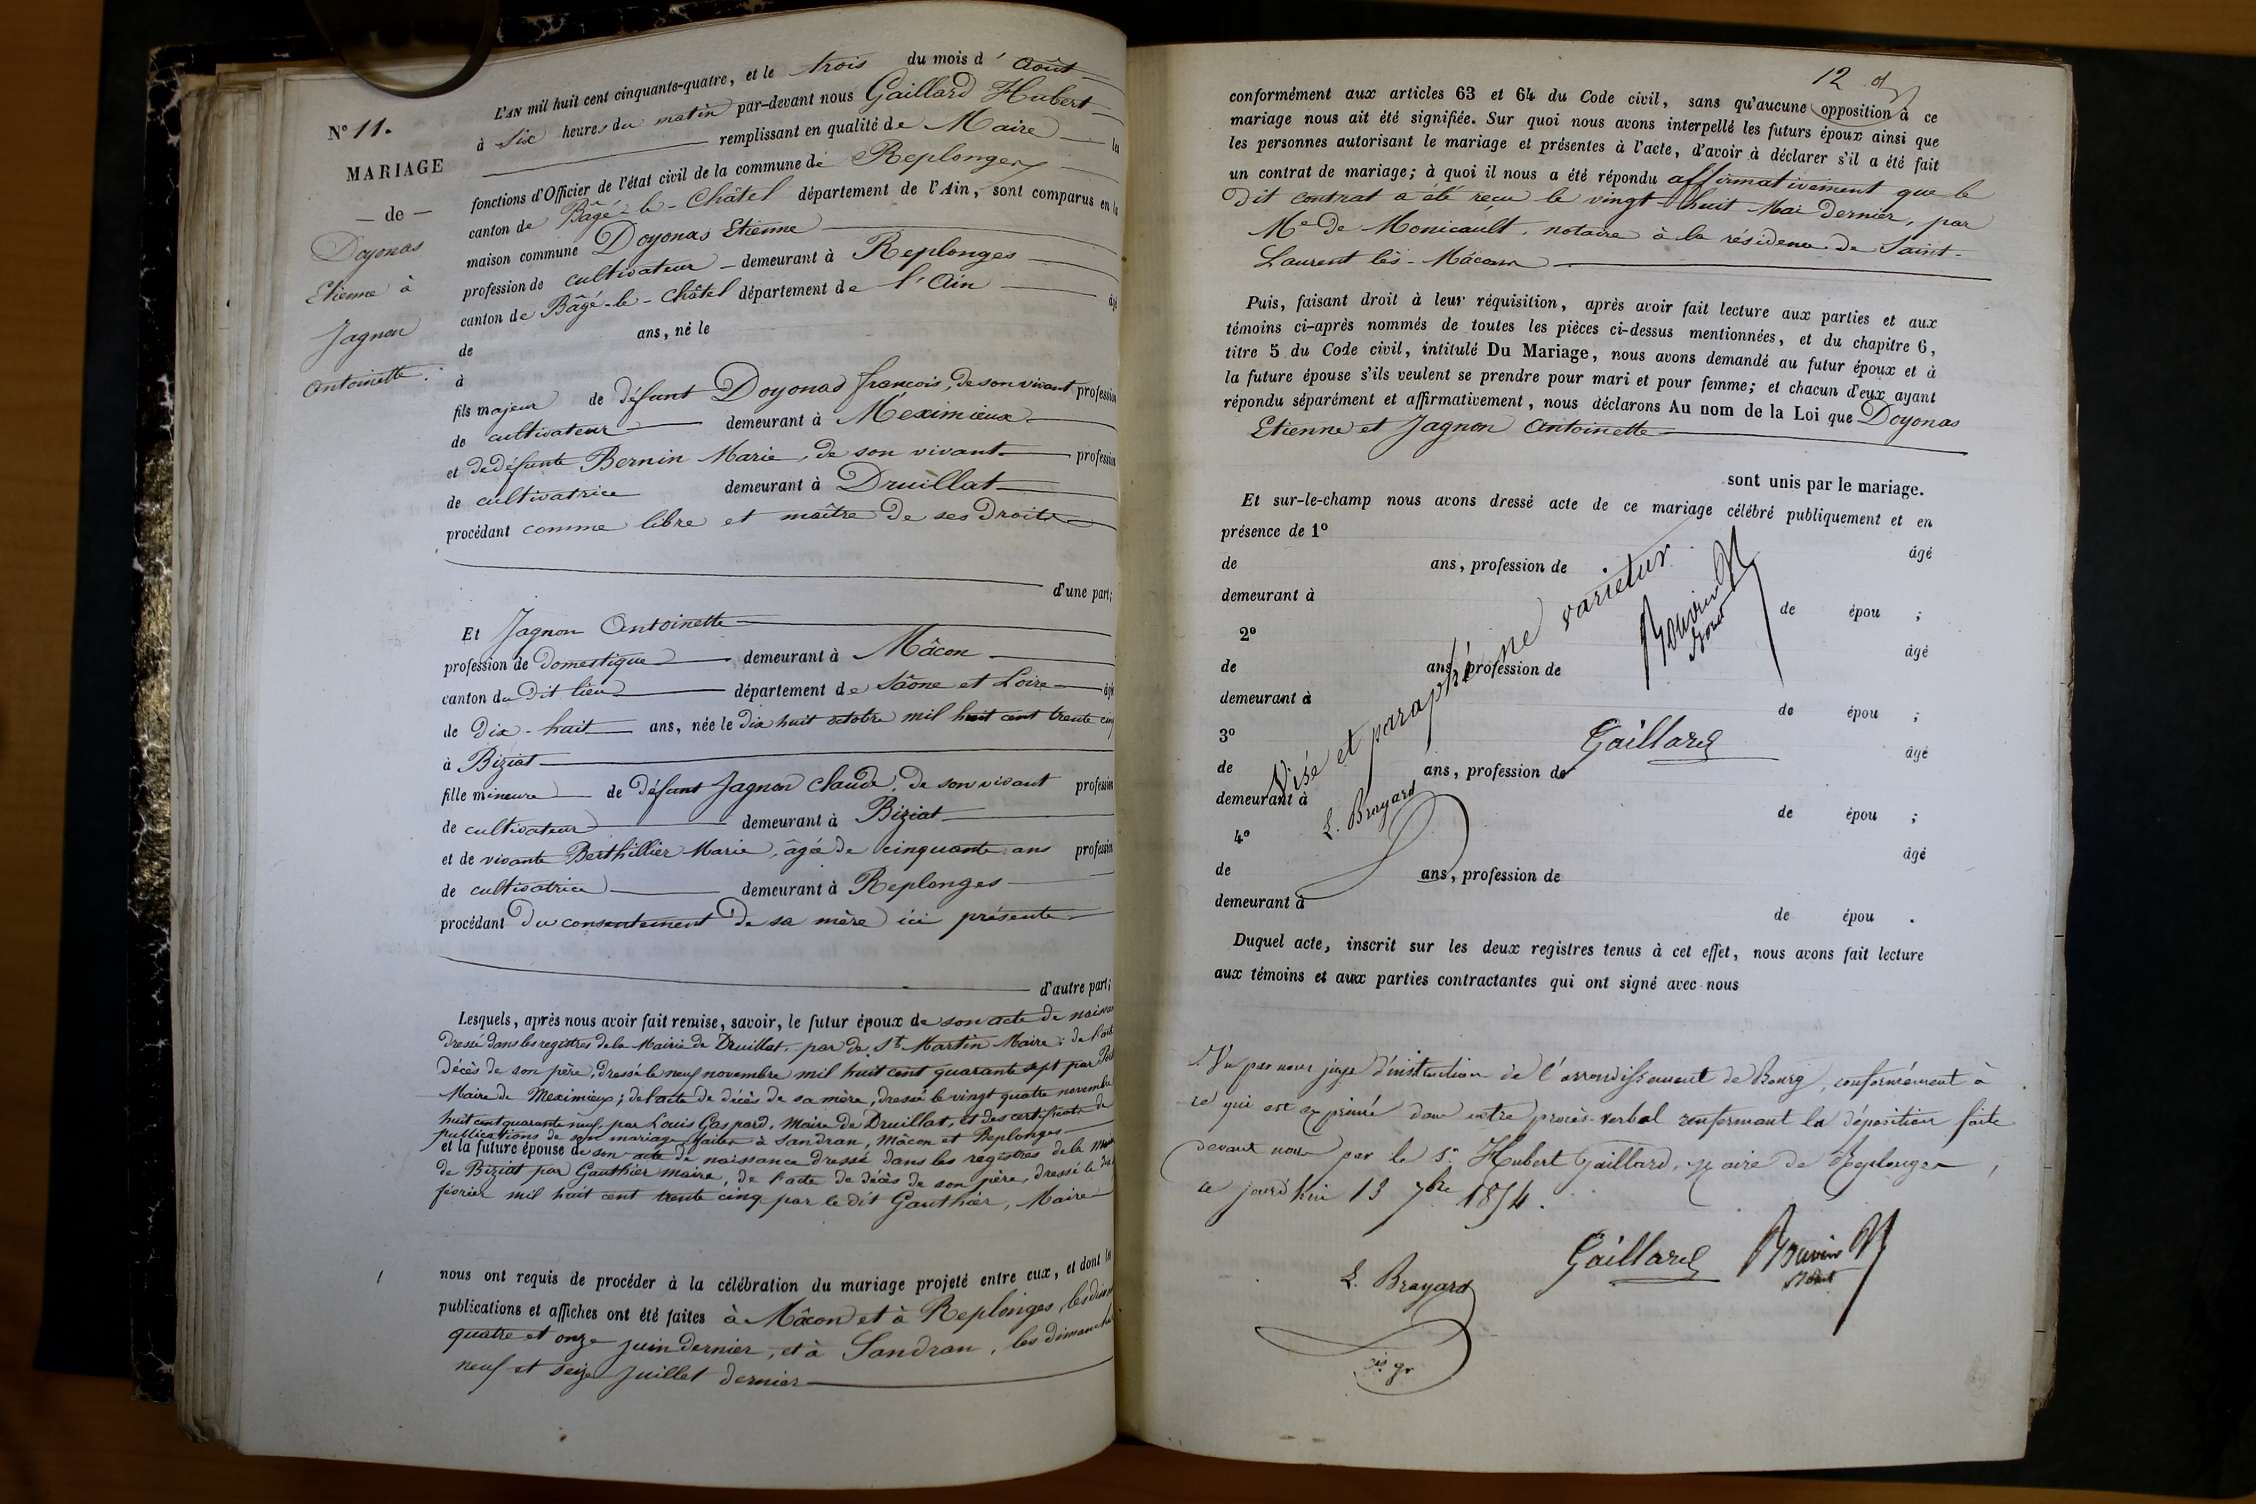 N° 11.
MARIAGE
— de —
Doyonas
Etienne à
Jagnon
Antoinette.
L'AN mil huit cent cinquante-quatre, et le trois du mois d'Août
à six heures du matin par-devant nous Gaillard Hubert
remplissant en qualité de Maire les
fonctions d'Officier de l'état civil de la commune de Replonges
canton de Bâgé-le-Châtel département de l'Ain, sont comparus en la
maison commune Doyonas Etienne
profession de cultivateur demeurant à Replonges
canton de Bâgé-le-Châtel département de l'Ain âgé
de ans, né le
à
fils majeur de défunt Doyonas françois, de son vivant profession
de cultivateur demeurant à Méximieux
et de défunte Bernin Marie, de son vivant profession
de cultivatrice demeurant à Druillat
procédant comme libre et maître de ses droits
d'une part;
Et Jagnon Antoinette
profession de domestique demeurant à Mâcon
canton du dit lieu département de Saône et Loire âgé
de dix-huit ans, née le dix huit octobre mil huit cent trente cinq
à Biziat
fille mineure de défunt Jagnon Claude, de son vivant profession
de cultivateur demeurant à Biziat
et de vivante Berthillier Marie, âgée de cinquante ans profession
de cultivatrice demeurant à Replonges
procédant du consentement de sa mère ici présente
d'autre part;
Lesquels, après nous avoir fait remise, savoir, le futur époux de son acte de naissance
dressé dans les registres de la Mairie de Druillat par de St Martin Maire; de l'acte
décès de son père, dressé le neuf novembre mil huit cent quarante sept par
Maire de Meximieux; de l'acte de décès de sa mère, dressé le vingt quatre novembre
huit cent quarante neuf, par Louis Gaspard, Maire de Druillat, et des certificats de
publications de son mariage faites à Sandran, Mâcon et Replonges
et la future épouse de son acte de naissance dressé dans les registres de la Mairie
de Biziat par Gauthier maire, de l'acte de décès de son père, dressé le
février mil huit cent trente cinq par le dit Gauthier, Maire
nous ont requis de procéder à la célébration du mariage projeté entre eux, et dont les
publications et affiches ont été faites à Mâcon et à Replonges, les
quatre et onze juin dernier, et à Sandran, les dimanches
neuf et seize Juillet dernier
12
conformément aux articles 63 et 64 du Code civil, sans qu'aucune opposition à ce
mariage nous ait été signifiée. Sur quoi nous avons interpellé les futurs époux ainsi que
les personnes autorisant le mariage et présentes à l'acte, d'avoir à déclarer s'il a été fait
un contrat de mariage; à quoi il nous a été répondu affirmativement que le
dit contrat a été reçu le vingt huit Mai dernier, par
Me de Monicault, notaire à la résidence de Saint-
Laurent lès-Mâcon
Puis, faisant droit à leur réquisition, après avoir fait lecture aux parties et aux
témoins ci-après nommés de toutes les pièces ci-dessus mentionnées, et du chapitre 6,
titre 5 du Code civil, intitulé Du Mariage, nous avons demandé au futur époux et à
la future épouse s'ils veulent se prendre pour mari et pour femme; et chacun d'eux ayant
répondu séparément et affirmativement, nous déclarons Au nom de la Loi que Doyonas
Etienne et Jagnon Antoinette
sont unis par le mariage.
Et sur-le-champ nous avons dressé acte de ce mariage célébré publiquement et en
présence de 1° âgé
de ans, profession de
demeurant à de épou ;
2° âgé
de ans, profession de
demeurant à de épou ;
3° âgé
de ans, profession de
demeurant à de épou ;
4° âgé
de ans, profession de
demeurant à de épou .
Visé et paraphé ne varietur
Gaillard
L. Brayard
Duquel acte, inscrit sur les deux registres tenus à cet effet, nous avons fait lecture
aux témoins et aux parties contractantes qui ont signé avec nous
Vu par nous juge d'instruction de l'arrondissement de Bourg, conformément à
ce qui est exprimé dans notre procès-verbal renfermant la déposition faite
devant nous par le Sr Hubert Gaillard, Maire de Replonges,
ce jourd'hui 13 7bre 1854.
Gaillard
L. Brayard
gr